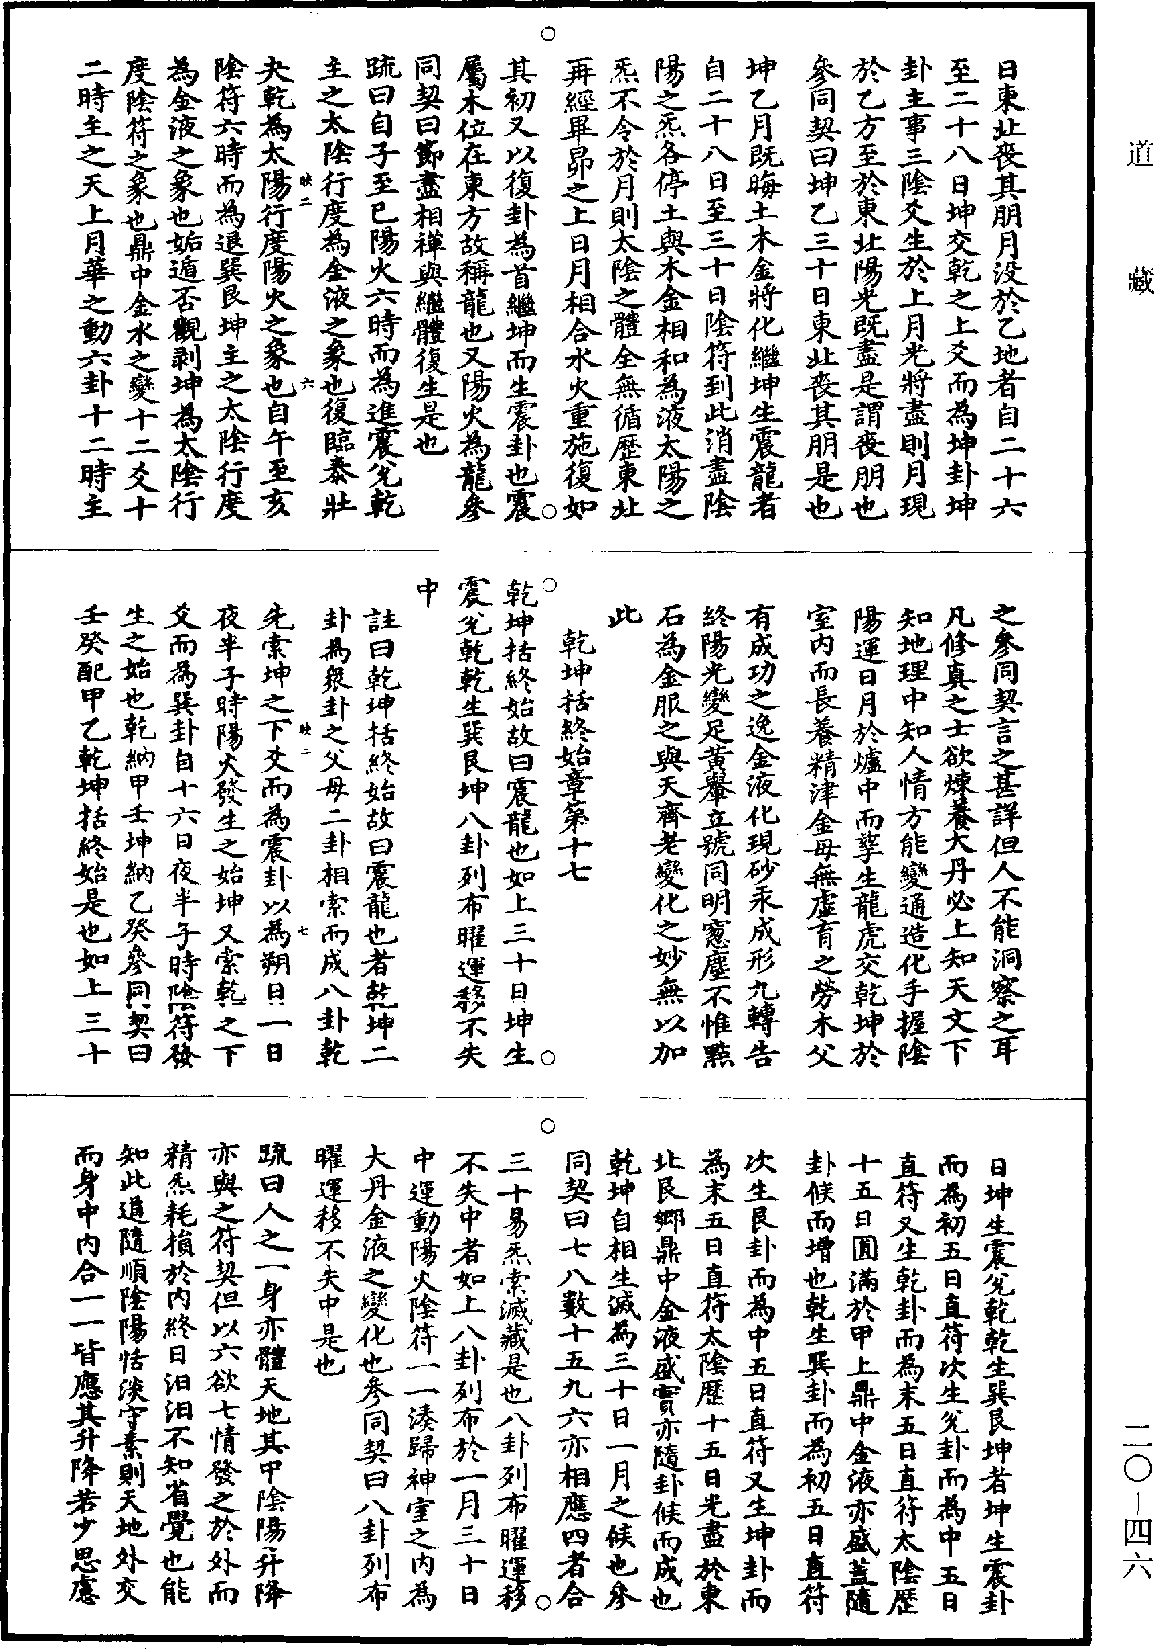 道藏
二〇-四六
日東北喪其朋月没於乙地者自二十六
至二十八日坤交乾之上爻而為坤卦坤
卦主事三陰爻生於上月光將盡則月現
於乙方至於東北陽光既盡是謂喪朋也
參同契曰坤乙三十日東北喪其朋是也
坤乙月既晦土木金將化繼坤生震龍者
自二十八日至三十日陰符到此消盡陰
陽之炁各停土與木金相和為液太陽之
炁不令於月則太陰之體全無循歷東北
再經畢昴之上日月相合水火重施復如
其初又以復卦為首繼坤而生震卦也震
屬木位在東方故稱龍也又陽火為龍參
同契曰節盡相禪與繼體復生是也
疏曰自子至巳陽火六時而為進震兌乾
主之太陰行度為金液之象也復臨泰壯
夬乾為太陽行度陽火之象也自午至亥
映二
六
陰符六時而為退巽艮坤主之太陰行度
為金液之象也姤遁否觀剥坤為太陰行
度陰符之象也鼎中金水之變十二爻十
二時主之天上月華之動六卦十二時主
之參同契言之甚詳但人不能洞察之耳
凡修真之士欲煉養大丹必上知天文下
知地理中知人情方能變通造化手握陰
陽運日月於爐中而孳生龍虎交乾坤於
室內而長養精津金母無虛育之勞木父
有成功之逸金液化現砂汞成形九轉告
終陽光變足黃轝立號同明窻塵不惟點
石為金服之與天齊老變化之妙無以加
此
乾坤括終始章第十七
乾坤括終始故曰震龍也如上三十日坤生
震兌乾乾生巽艮坤八卦列布曜運移不失
中
註曰乾坤括終始故曰震龍也者乾坤二
卦為衆卦之父母二卦相索而成八卦乾
先索坤之下爻而為震卦以為朔日一日
映二
七
夜半子時陽火發生之始坤又索乾之下
爻而為巽卦自十六日夜半子時陰符發
生之始也乾納甲壬坤納乙癸參同契曰
壬癸配甲乙乾坤括終始是也如上三十
日坤生震兌乾乾生巽艮坤者坤生震卦
而為初五日直符次生兌卦而為中五日
直符又生乾卦而為末五日直符太陰歷
十五日圓滿於甲上鼎中金液亦盛蓋隨
卦候而增也乾生巽卦而為初五日直符
次生艮卦而為中五日直符又生坤卦而
為末五日直符太陰歷十五日光盡於東
北艮鄉鼎中金液盛實亦隨卦候而成也
乾坤自相生滅為三十日一月之候也參
同契曰七八數十五九六亦相應四者合
三十易炁索滅藏是也八卦列布曜運移
不失中者如上八卦列布於一月三十日
中運動陽火陰符一一湊歸神室之內為
大丹金液之變化也參同契曰八卦列布
曜運移不失中是也
疏曰人之一身亦體天地其中陰陽升降
亦與之符契但以六欲七情發之於外而
精炁耗損於內終日汩汩不知省覺也能
知此道隨順陰陽恬淡守素則天地外交
而身中內合一一皆應其升降若少思慮